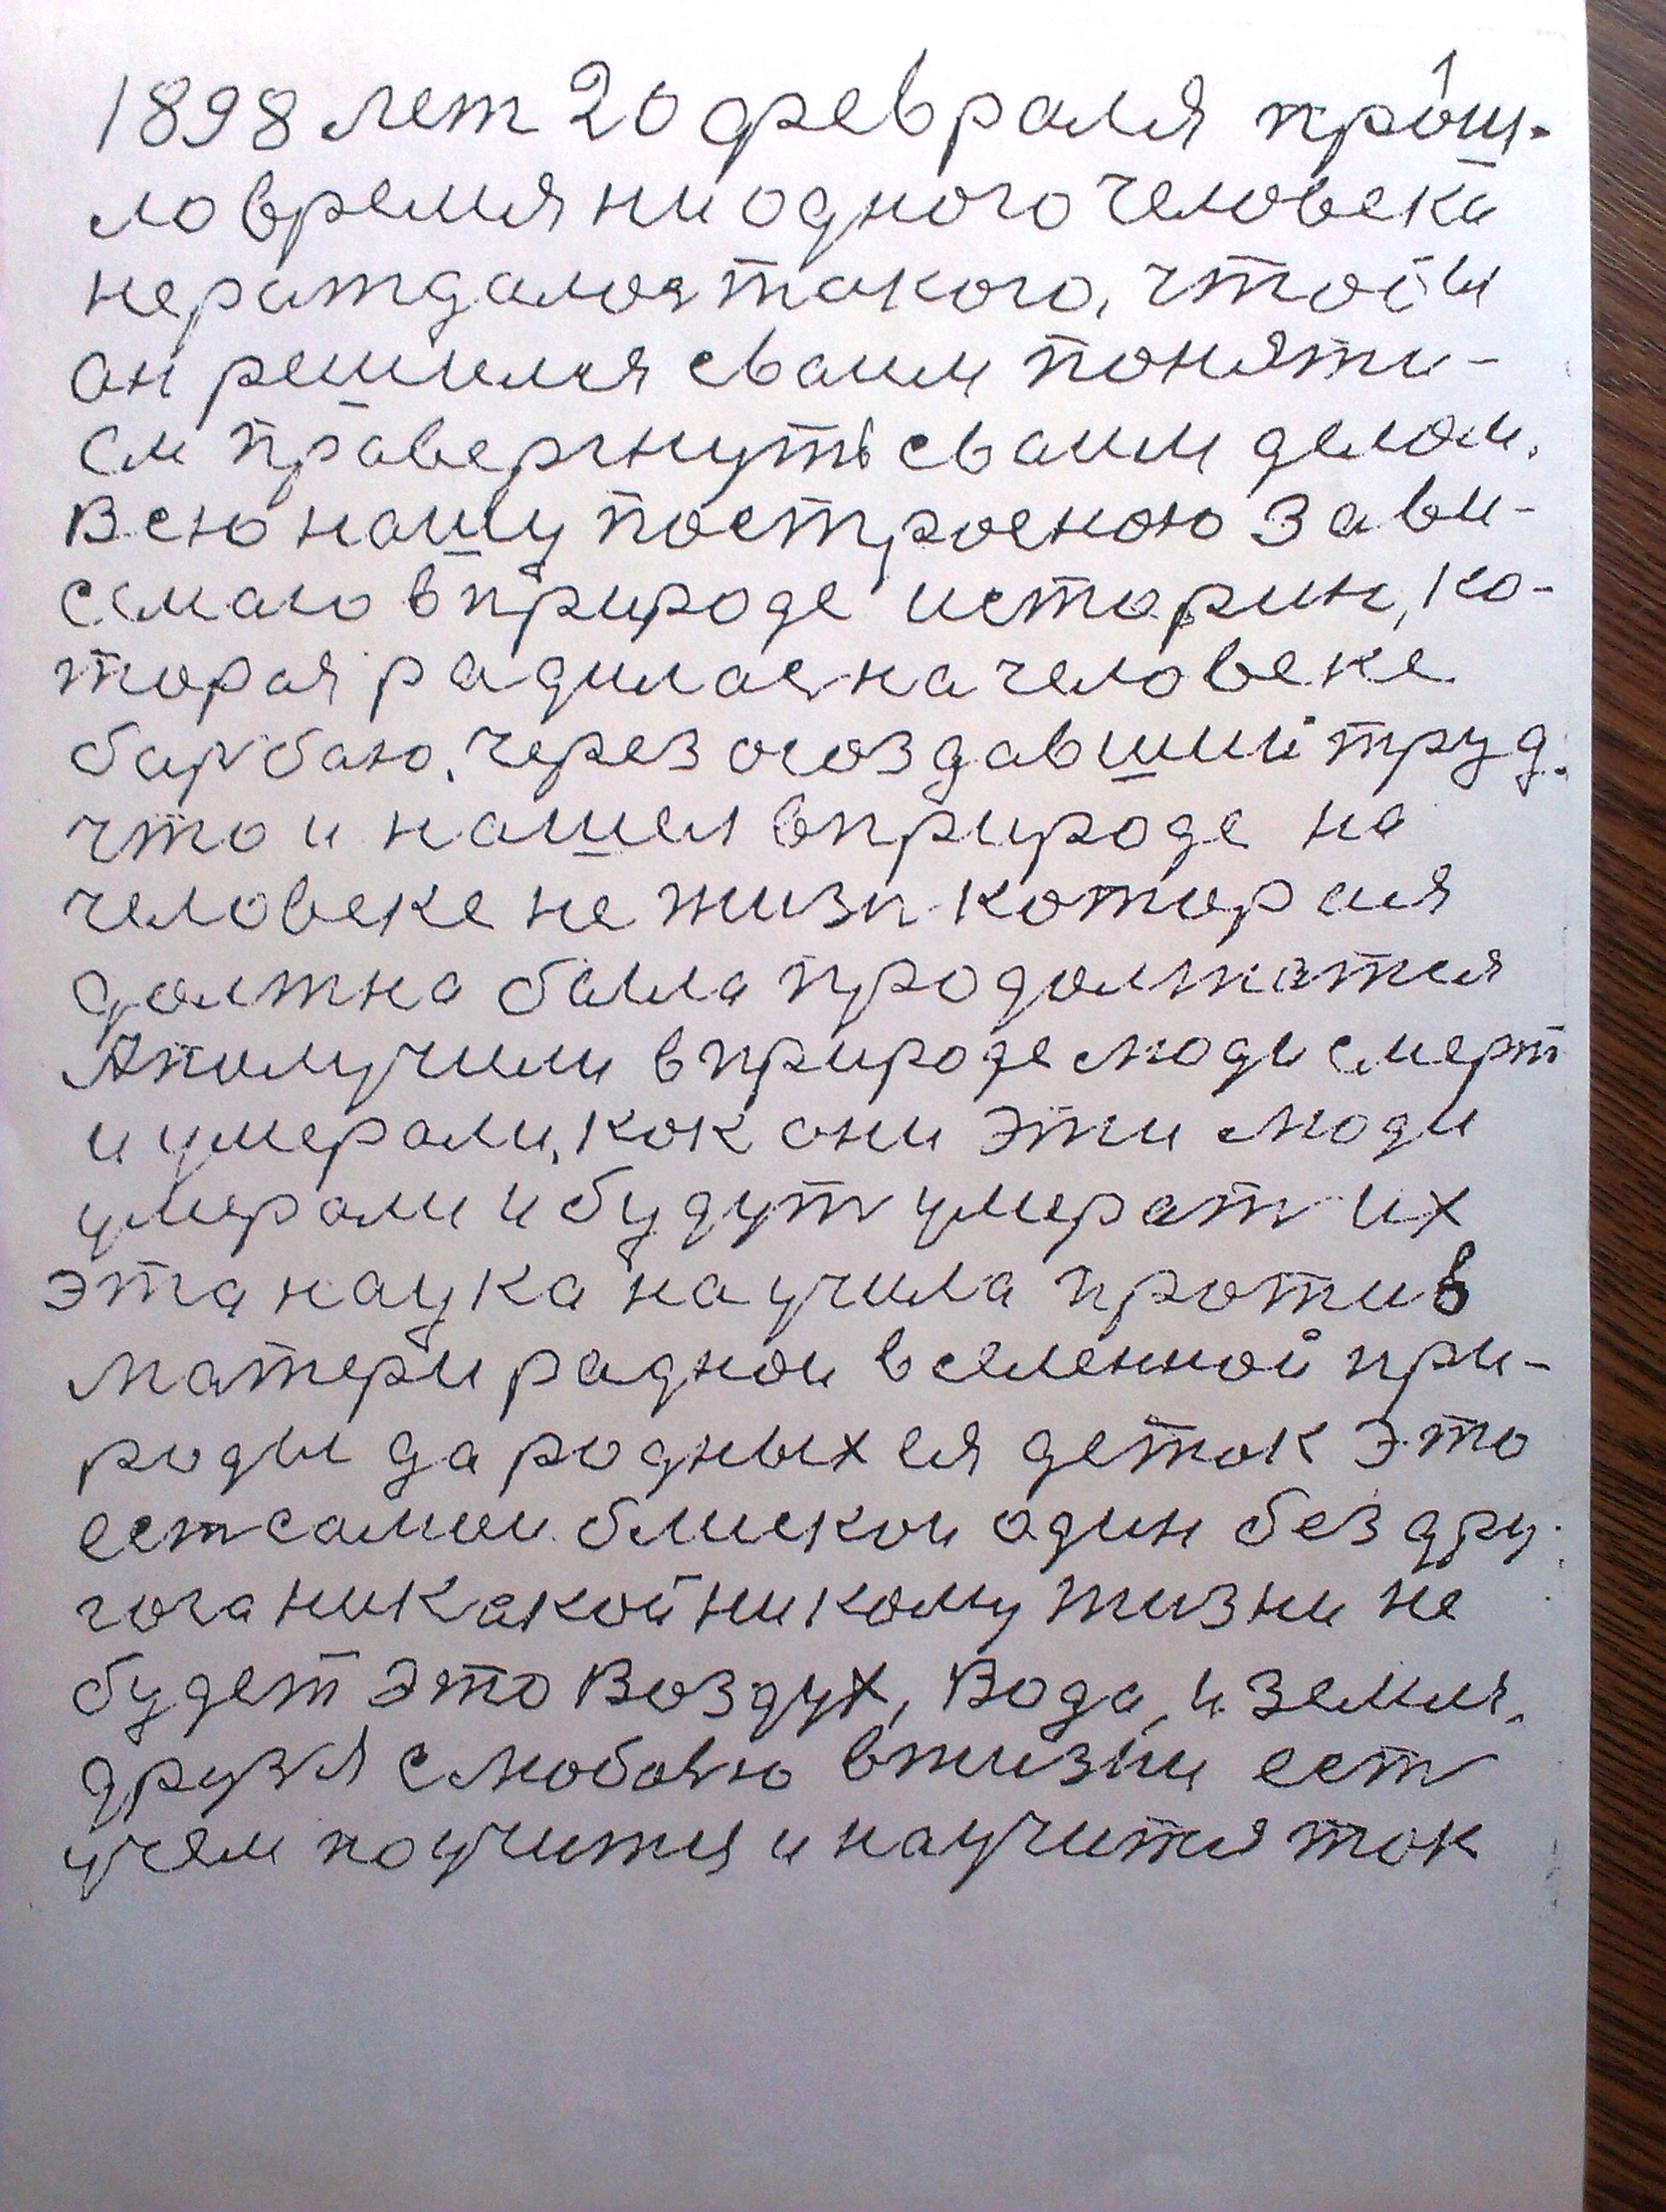 1898 лет 20 февраля прош-
ло время ни одного человека
нераждалося такого, чтобы
он решился сваим поняти-
ем правергнуть сваим делом.
Всю нашу построеною зави-
семаю в природе истории, ко-
торая радилась на человеке
барбаю. через создавший труд.
что и нашел в природе на
человеке не жизн которая
должна была продолжатся
А получили в природе люди смерт
и умерали, как они эти люди
умерали и будут умерат их
эта наука научила против
матери радной вселенной при-
роды да родных ея деток это
ест самои блискои один без дру-
гога никакой никому жизни не
будет это Воздух, Вода, и земля.
друзя с любовю в жизни ест
учем поучится и научится так